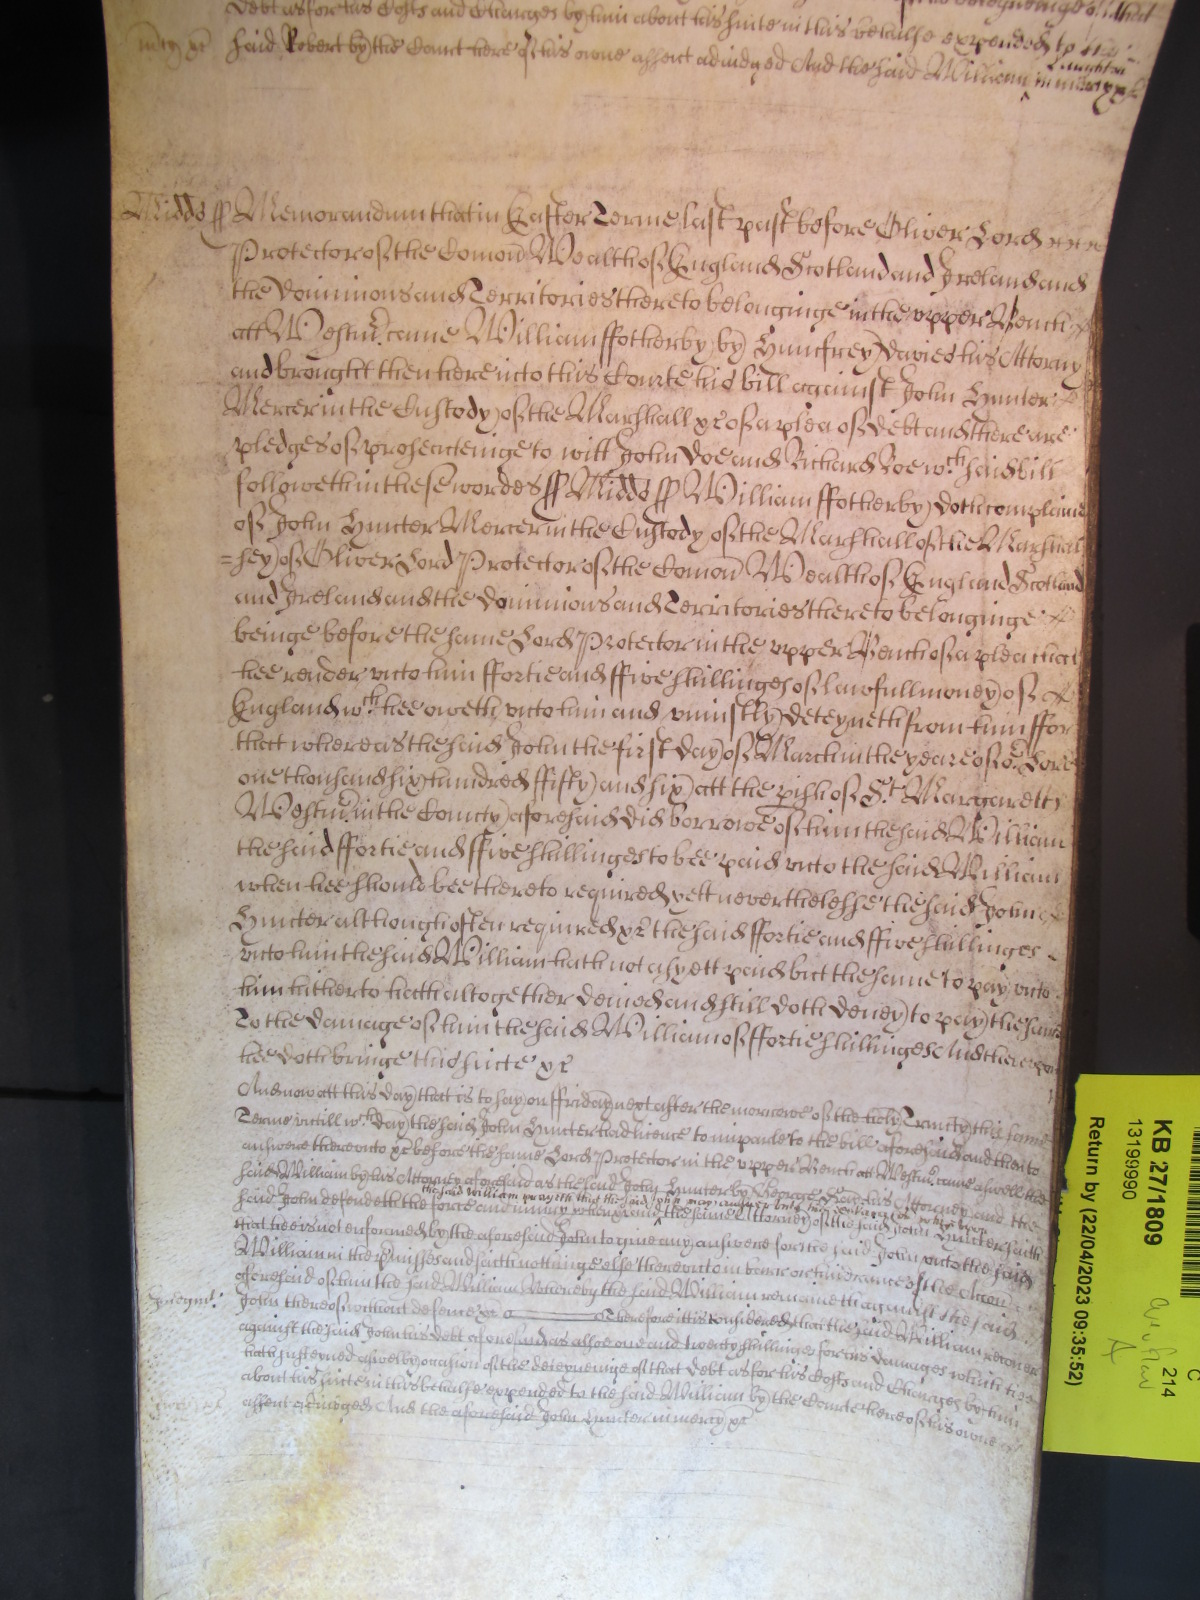 debt as for his Costs and Charges by him about his suite in this behalfe expended to the
mcy &c said Robert by the Court here of his owne assent adiudged And the said William Laughton in mercy &c
Midds ss Memorandum that in Easter Terme last past before Oliver Lord
Protector of the Comon Wealth of England Scotland and Ireland and
the Dominions and Territories thereto belonginge in the vpper Bench
att Westmr. came William ffotherby by Humfrey Davies his Attorny
and brought then here into this Courte his bill against John Hunter
Mercer in the Custody of the Marshall &c of a plea of debt and there are
pledges of prosecuteinge to witt John Doe and Richard Roe wch. said bill
followeth in these wordes ss Midds ss William ffotherby doth complaine
of John Hunter Mercer in the Custody of the Marshall of the Marshal
=sey of Oliver Lord Protector of the Comon Wealth of England Scotland
and Ireland and the Dominions and Territories thereto belonginge
beinge before the same Lord Protector in the vpper Bench of a plea that
hee render vnto him ffortie and ffive shillinges of lawfull money of
England wch. hee oweth vnto him and vniustly deteyneth from him ffor
that whereas the said John the first day of March in the yeare of or. Lord
one thousand six hundred ffifty and six att the pish of St. Margaretts
Westmr. in the County aforesaid did borrowe of him the said William
the said ffortie and ffive shillinges to bee paid vnto the said William
when hee should bee thereto required yett neverthelesse the said John
Hunter although often required &c the said ffortie and ffive shillinges
vnto him the said William hath not as yett paid but the same to pay vnto
him hitherto hath altogether denied and still doth deney to pay the same
To the damage of him the said William of ffortie shillinges And thereupon
hee doth bringe this suite &c
And now att this day that is to say on ffriday next after the morrowe of the holy Trinity this same
Terme vntill wch. day the said John Hunter had licence to imparle to the bill aforesaid and then to
answere therevnto &c before the same Lord Protector in the vpper Bench at Westmr. came aswell the
said William by his Attorney aforesaid as the said John Hunter by George his Attorney and the
said John defendeth the force and iniury when &c And
the said William prayeth that the said John may answer vnto
the same Attorney of the said John Hunter saith
that hee is not enformed by the aforesaid John to give any answere for the said John vnto the said
William in the premisses and saith nothinge else therevnto in barr or hindrance of the Accon
aforesaid of him the said William Whereby the said William remaineth against the said
John thereof without defence &c Therefore itt is considered that the said William recover
against the said John his debt aforesaid as alsoe one and twenty shillinges for his damages which hee
hath susteyned aswell by occasion of the deteyneinge of that debt as for his Costs and Charges by him
about his suite in this behalfe expended to the said William by the Courte here of his owne
assent adiudged And the aforesaid John Hunter in mercy &c
KB 27/1809
13199990
Return by (22/04/2023 09:35:52)
C
214
A